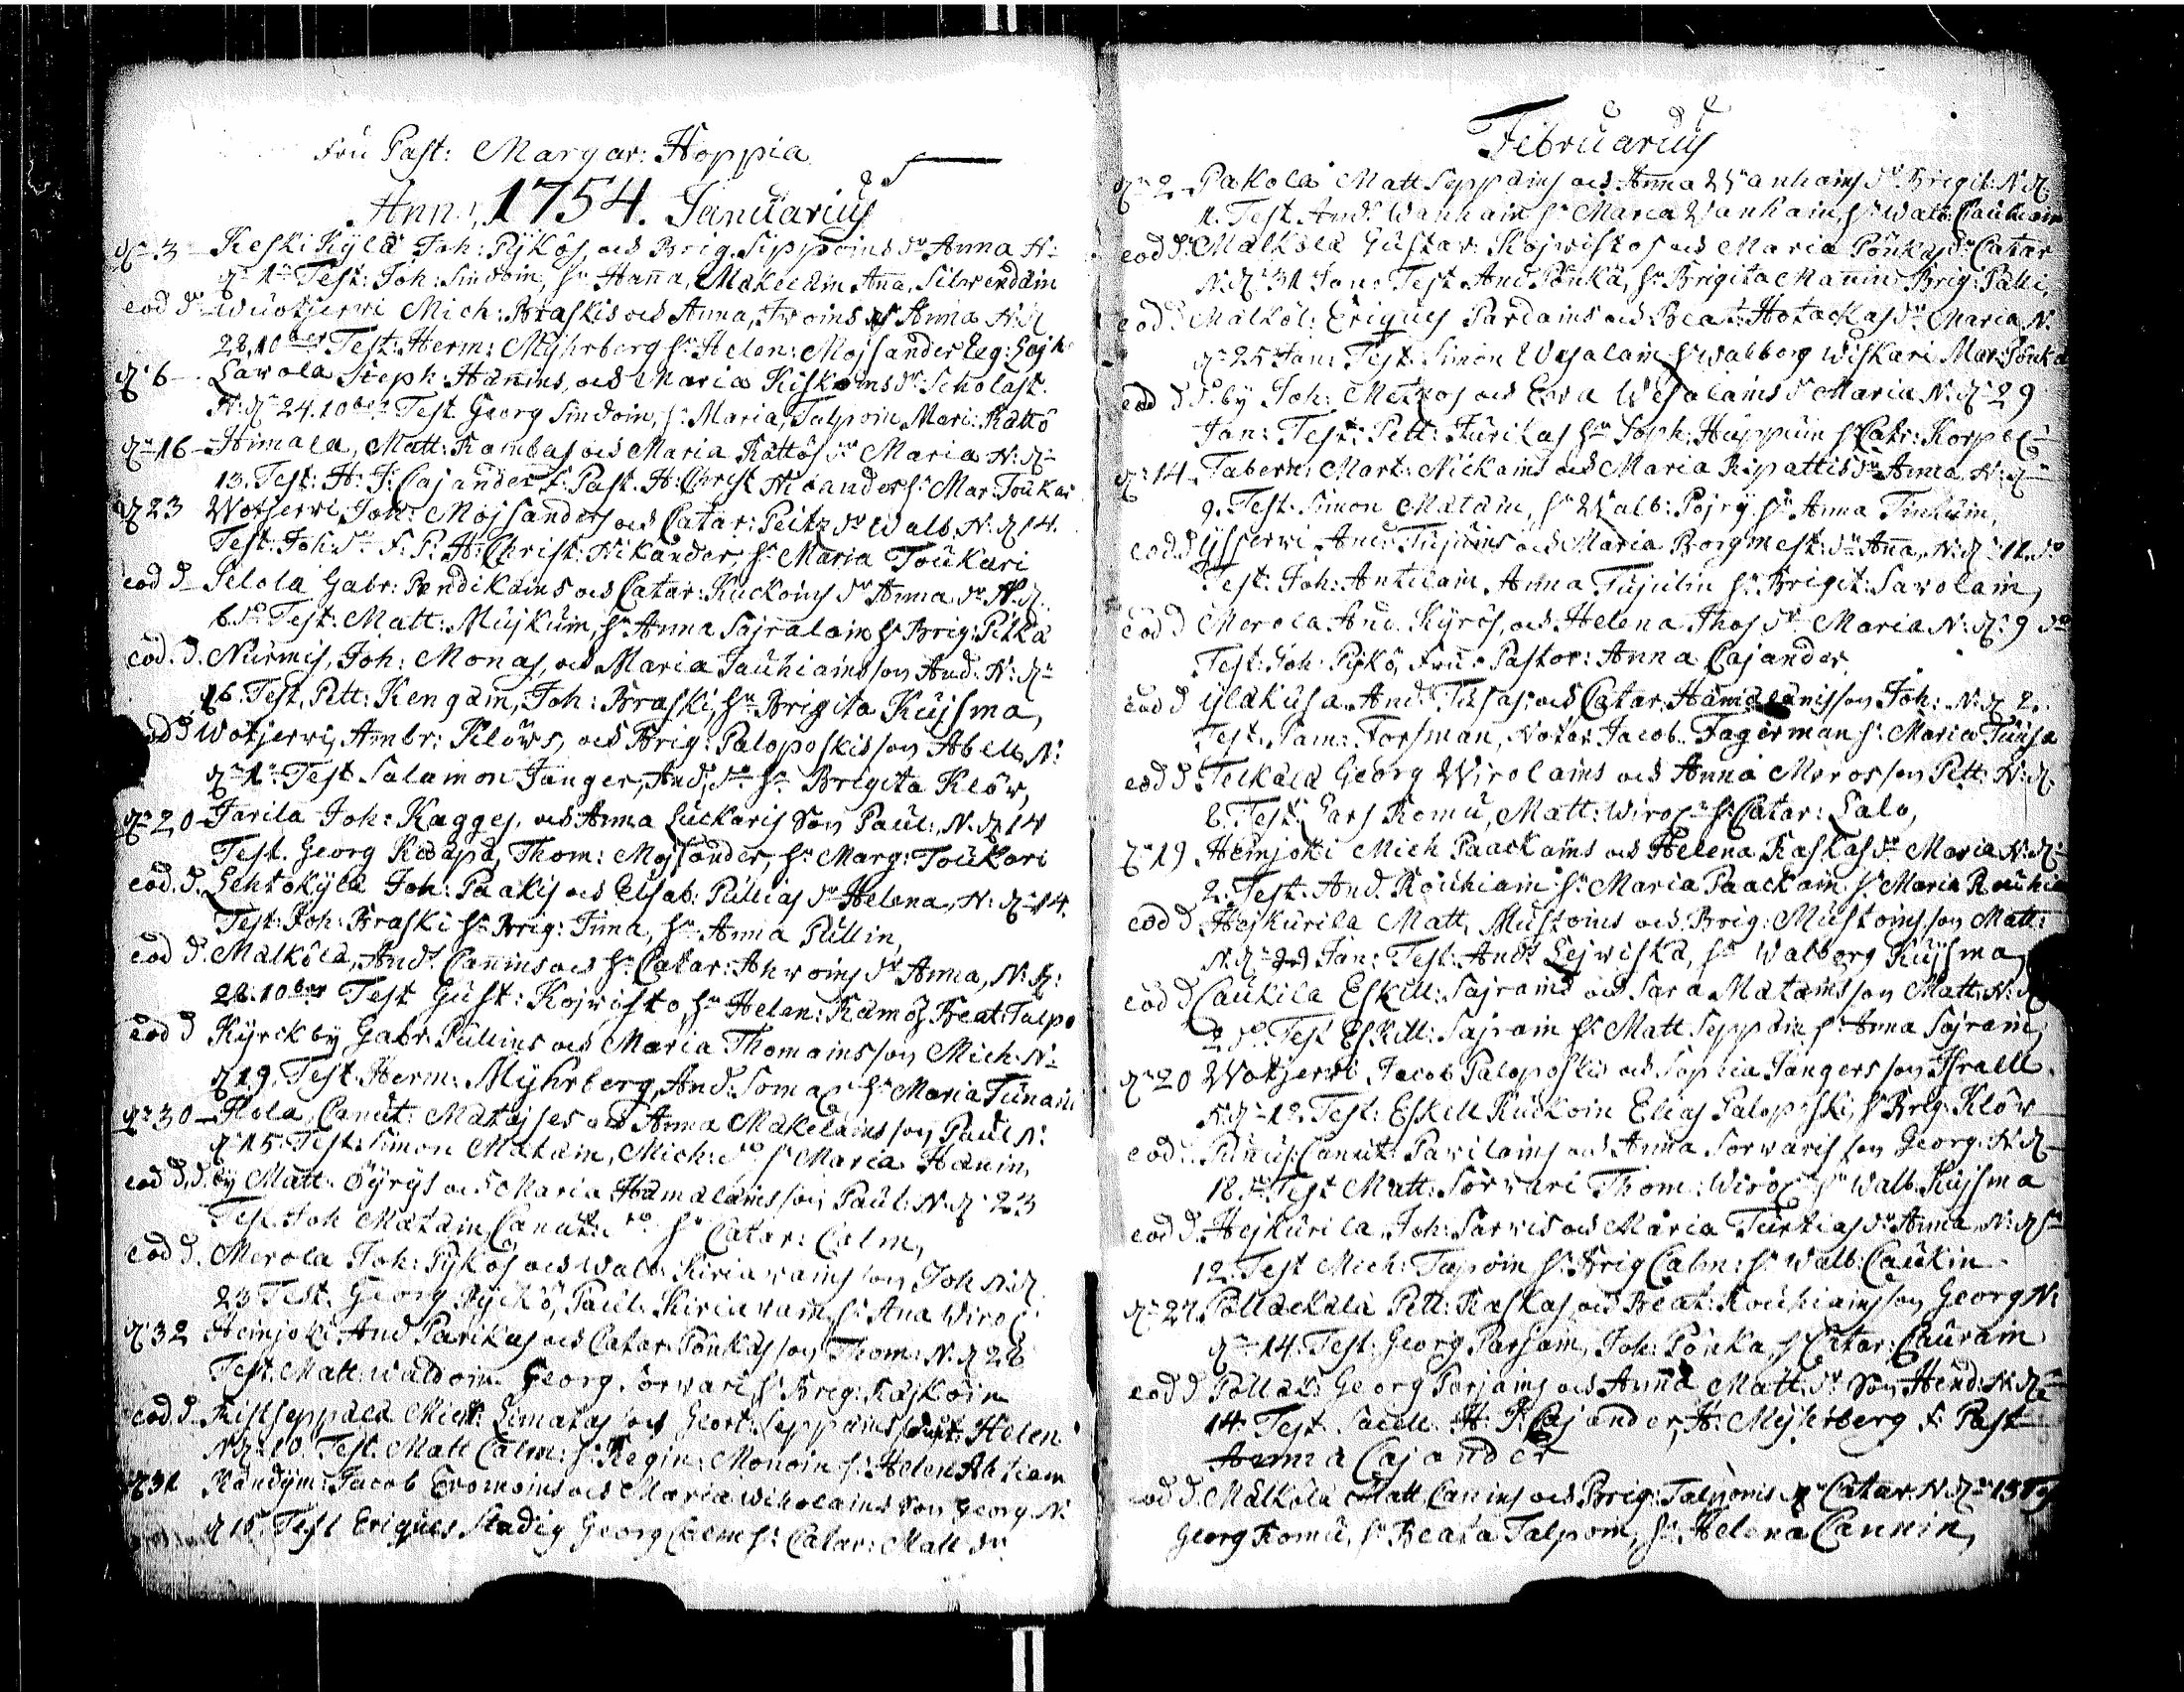 Fru Past: Margar: Hoppia
Anno, 1754. Januarius
d. 3 Keski Kylä Joh: Pykös, ock Brig. Sippoins dr Anna N:
d. 1 Test: Joh: Sindoin, hr Hanna, Makelain Anna, Silwendain
eod d. Wuotjerwi Mich: Braskis ock Anna, Awoins dr Anna N: d.
28, 10ber Test: Herm: Myhrberg hr Helen: Mojsander
d. 6 Lavola Steph: Hanins, ock Maria Kiskoins dr Scholast:
N: d. 24. 10ber Test. Georg Sindoin, hr Maria Talpoin Mari: Kattö
d. 16 Himala, Matt: Kambas ock Maria Kattös dr Maria N: d.
13. Test: H: J: Cajander, F: Past. H: Christ Nicander hr Mar: Toukar
d. 23 Wotjerwi, Joh: Mojsanders ock Catar: Peitz dr Walb. N: d. 14.
Test. Joh: F: P: H: Christ: Nikander, hr Maria Toukari
eod d. Selola Gabr: Pendikains ock Catar: Kuckoins dr Anna N: d.
6. Test: Matt: Mujkuin, hr Anna Sajralain hr Brig: Pitkä
eod. d. Nurmis, Joh: Monas, ock Maria Jauhiains son And: N: d.
16. Test. Pett: Kengain, Joh: Braski, hr Brigita Kujsma,
eod d Wotjerwi, Ambr: Klöws, ock Brig: Paloposkis son Abell N:
d. 1. Test Salamon Janger, And: hr Brigita Klöw,
d. 20 Jarila Joh: Kagges, ock Anna Luckaris Son Paul: N. d. 14
Test. Georg Kaapa, Thom: Mojsander, hr Marg: Toukari
eod. d. Lehtokylä Joh: Paakis ock Elisab: Pullias dr Helena, N: d. 14.
Test: Joh: Braski hr Brig: Inna, hr Anna Pullin,
eod d. Malköla, And: Canins ock hr Catar: Ahwoins dr Anna, N: d:
28. 10ber Test Gust: Kojwisto, hr Helen: Kamoz Beat: Talpo
eod d Kyrckby Gabr. Pullins ock Maria Thomains son Mich: N:
d. 19. Test. Herm: Myhrberg, And: Soma hr Maria Tunain
d. 30 Ilola, Canut: Matajses ock Anna Makelains son Paul N:
d. 15. Test: Simon Matain, Mich: hr Maria Hanin,
eod d. d. by Matt: Öyrys ock Maria Hamalains son Paul: N: d. 23
Test. Joh Matain, Canut: hr Catar: Calm,
eod d. Merola Joh: Pykös ock Walb. Kiriawains son Joh N: d.
23 Test. Georg Pyckö, Paul. Kiriawain, hr Ana Wiro
d. 32 Heinjoki And Parikas ock Catar: Ponkas son Thom: N. d. 28
Test. Matt: Waldoin Georg Sorwari, hr Brig: Kajkoin
eod d. Kistseppälä Mich: Limatas ock Geort: Seppains dot: Helen
N. d. 10. Test. Matt Calm: hr Regin: Monoin hr Helen Ahtiain
d. 31 Kandym: Jacob Eromoins ock Maria Wiholains Son Georg N:
d. 15. Test Eriques Stadig Georg Calm hr Catar: Matt dr.
Februarius
d. 2 Pakola Matt Seppains ock Anna Wanhains dr Brigit: N. d.
1. Test. And: Wanhain hr Maria Wanhain, hr Walb: Caukain
eod d. Malkölä Gustav: Kojwistos ock Maria Ponkas dr Catar
N. d. 31 Jan: Test And Ponka, hr Brigita Manin Brig: Palli,
eod d. Malköl: Eriques Pardains ock Beat: Hotackas dr Maria N.
d. 25 Jan: Test Simon Wesalain hr Walborg Wiskari Mar: Ponka
eod d d. by Joh: Metzos ock Ewa Wesalains dr Maria N. d. 29
Jan: Test: Pett: Jurikas hr Soph: Huppuin hr Catr: Korpe
d. 14 Tabern: Mart: Nickains ock Maria Ripattis dr Anna N: d.
9. Test. Simon Matain, hr Walb: Pojry hr Anna Tinkuin,
eod. d Ijsjerwi And: Tujuins ock Maria Borgmest: dr Anna, N: d. 12. do
Test: Joh: Antilain, Anna Tujulin hr Brigit: Savolain,
eod d Merola And. Kyrös, ock Helena Thos dr Maria N: d: 9
Test: Joh: Pykö, Fru: Pastor: Anna Cajander.
eod d Yläkusa And: Tusas ock Catar Hamalanis son Joh: N: d. 2.
Test. Sam: Forsman, Notar Jacob Fagerman hr Maria Tuusa
eod d. Telkälä Georg Wirolains ock Anna Meros son Pett: N: d.
8. Test. Lars Komu, Matt: Wiro hr Catar: Lalo,
d. 19 Heinjoki Mich Paackains ock Helena Kaskas dr Maria N: d.
2. Test. And. Rouhiain hr Maria Paackain hr Maria Rouhia
eod d. Hejkurila Matt: Mustoins ock Brig: Mustoins son Matt:
N. d. 29 Jan: Test: And: Lejwiska, hr Walborg Kujsma
eod d Caukila Eskill: Sajrains ock Sara Matains son Matt: N: d.
2 do Test Eskill: Sajrain hr Matt Seppain hr Anna Sajrain,
d. 20 Wotjerwi Jacob Paloposkis ock Sophia Jangers son Israell.
N. d. 12. Test: Eskell Kuckoin Elias Paloposki, hr Brig: Klöw
eod d. Punnus: Canut: Pavilains ock Anna Sorwaris son Georg: N. d.
18. Test Matt: Sorwari Thom: Wiro hr Walb. Kujsma
eod d. Hejkurila, Joh: Sarwis ock Maria Turkias dr Anna N: d.
12. Test Mich: Tapoin hr Brig Calm: hr Walb: Caukin
d. 27. Pollackala Pett: Kaskas ock Beat: Rouhiains son Georg N:
d. 14. Test. Georg Parsain, Joh: Ponka, hr Catar: Caurain
eod d Pollak: Georg Parjains ock Anna Matt: dr Son Hend: N: d.
14. Test. Sacell. H: J: Cajander, H: Myhrberg F: Past
Anna Cajander
eod d. Malkola Matt Canins ock Brig: Talpoins dr Catar. N. d. 13
Georg Komu, hr Beata Talpoin, hr Helena Cannin,